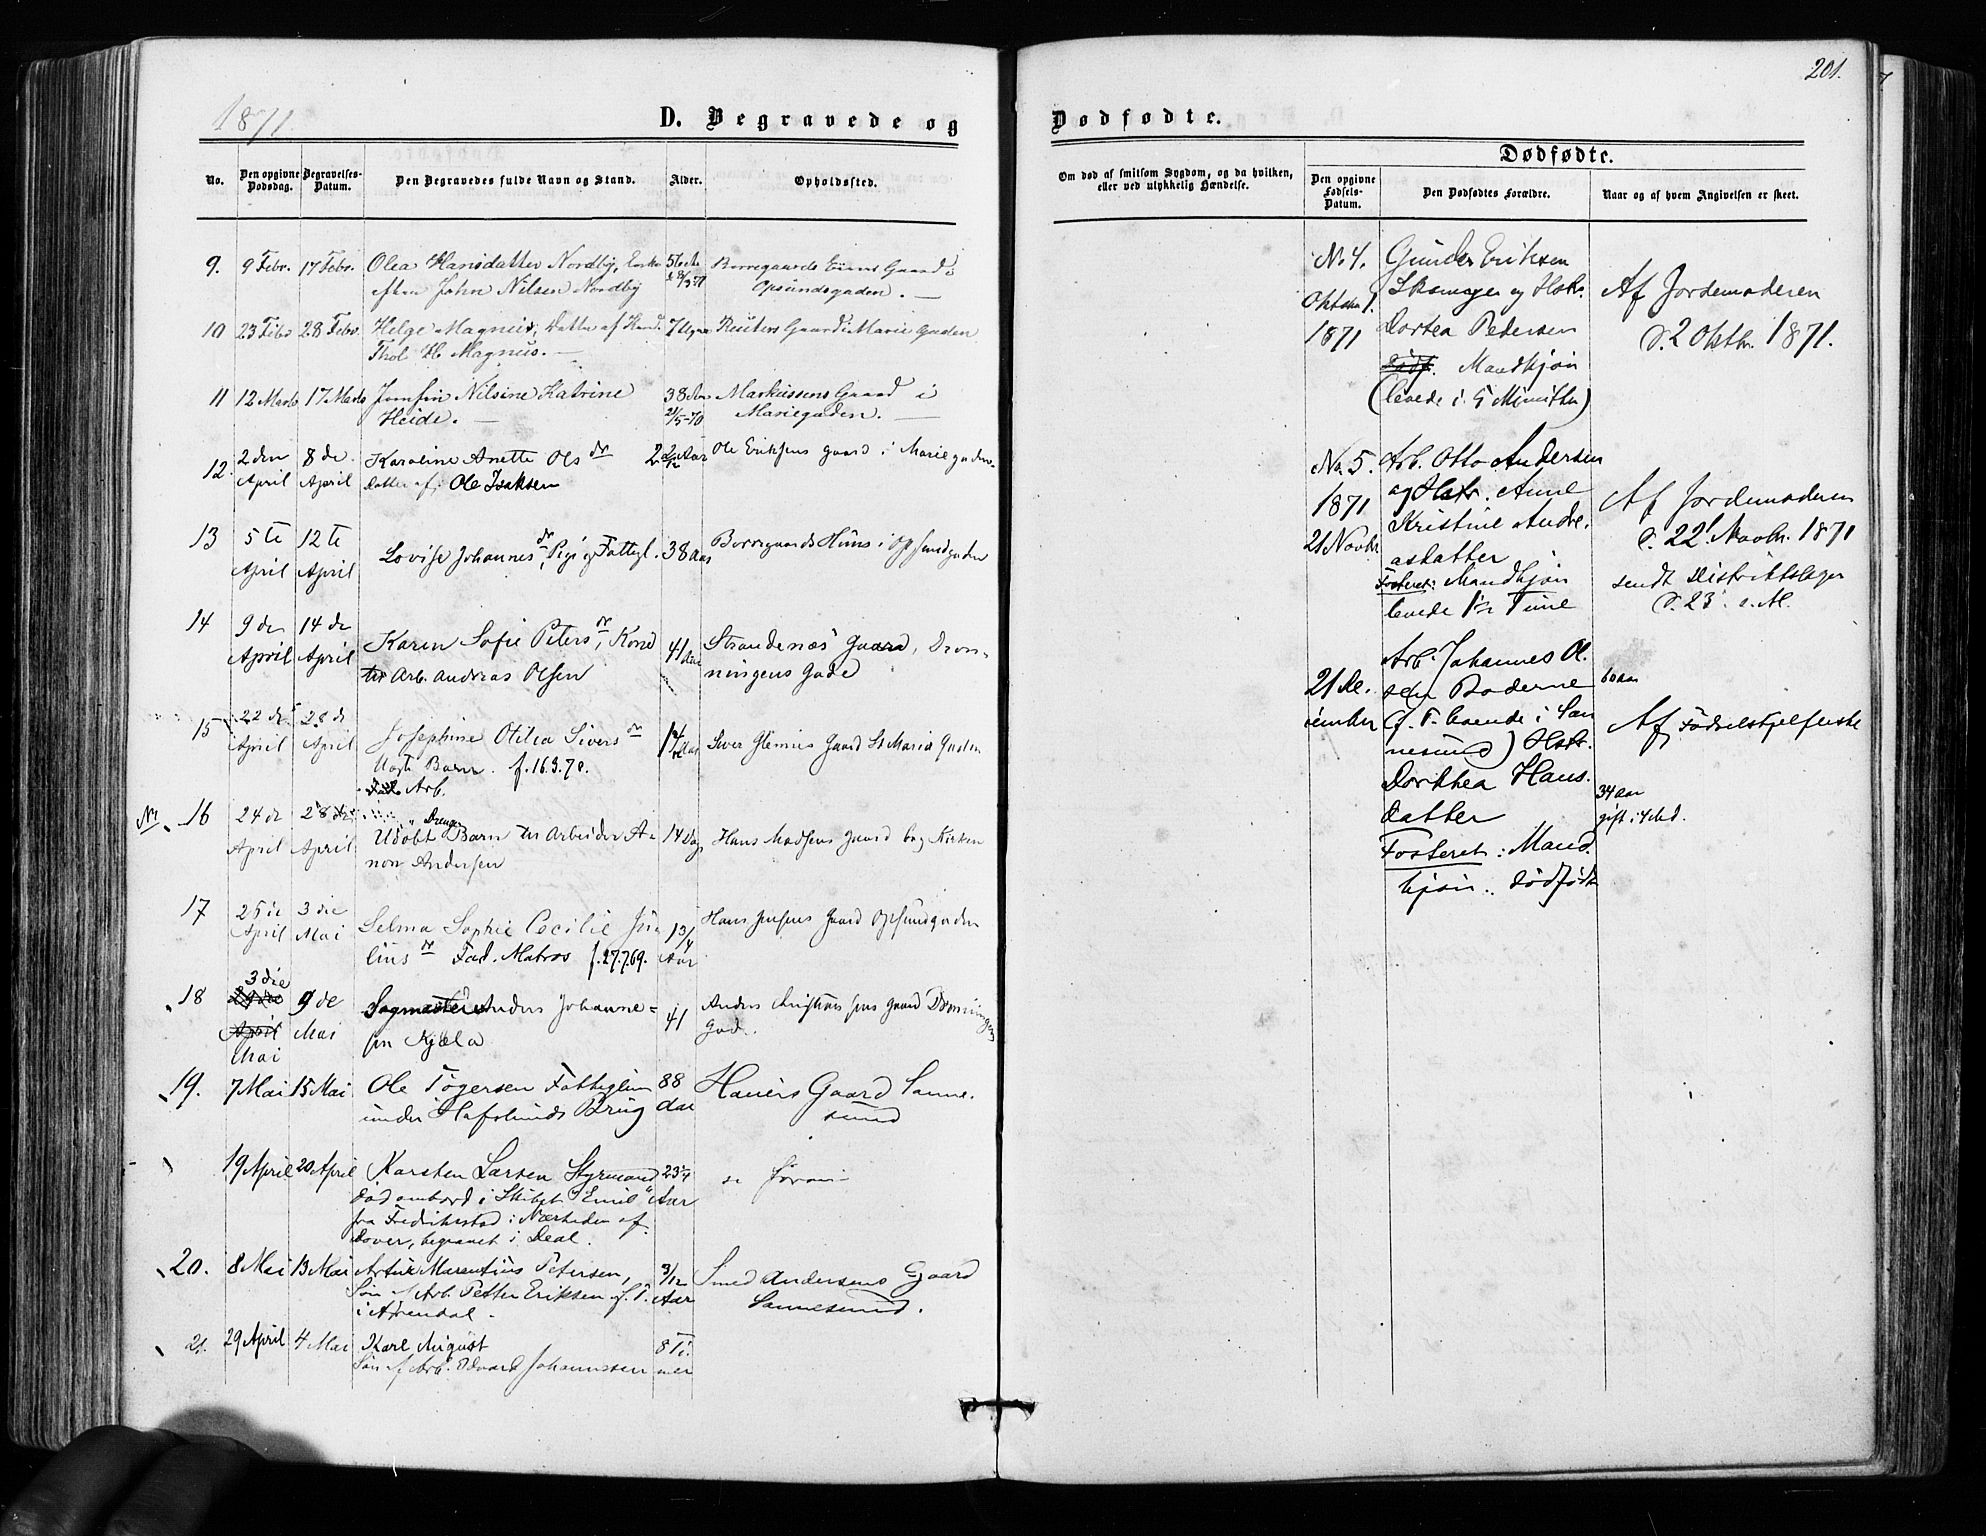 201.
1871
D. Begravede og
Dødfødte.
No.
Den opgivne Dødsdag.
Begravelses-Datum.
Den Begravedes fulde Navn og Stand.
Alder.
Opholdssted.
9.
9 Febr.
17 Febr.
Olea Hansdatter Nordby, Enke
efter John Nilsen Nordby
56
Borregaards Gaard i
Opsundgaden. —
10
23 Febr
28 Febr.
Helge Magnus, Datter af
Thol H. Magnus. —
7 Uger
Reuters Gaard i Marie Gaden
11
12 Marts
17 Marts
Jomfru Nilsine Katrine
Heide. —
38
21/5-70
Markussens Gaard i
Mariegaden. —
12.
2 den April
8 de April
Karoline Anette Ols dr
Datter af: Ole Isaksen
2 2/12 Aar
Ole Eriksens Gaard i Mariegaden.
13
5 te April
12 te April
Lovise Johannes dr, Pige og Fattigl.
38 Aar
Borregaards Huus i Opsundgaden
14
9 de April
14 de April
Karen Sofie Peters dr, Kone
til Arb. Andreas Olsen
41 Aar
Strandenæs Gaard, Dron-
ningens Gade
15
22 de April
28 de April
Josephine Otilia Sivers dr
Uægte Barn. f. 16.3.70.
Arb.
Siver Glemnes Gaard St Marie Gaden
No 16
24 de April
28 de April
Drenge
Udøbt Barn til Arbeider A-
non Andersen
14 Dag
Hans Madsens Gaard bag Kirken
17
25 de April
3 die Mai
Selma Sophie Cecilie Ju-
lius dr Fad. Matros f. 27.7.69.
1 3/4 Aar
Hans Jensens Gaard Opsundgaden
18
3 die
29 de
April
Mai
9 de Mai
Sagmester Anders Johanne-
sen Kjæla
41
Anders Kristiansens Gaard Dronningens
Gade.
19.
7 Mai
15 Mai
Ole Tøgersen Fattiglem
under Hafslunds Brug
88 Aar
Hauers Gaard Sanne-
sund
19 April
20 April
Karsten Larsen Styrmand
død ombord i Skibet "Emil"
fra Fredrikstad i Nærheden af
Dover, begravet i Deal.
23 Aar
20.
8 Mai
13 Mai
Marentius Petersen,
Søn af Arb. Petter Eriksen f. T.
i Arendal.
3/12 Aar
Smed Andersens Gaard
Sannesund.
21.
29 April
4 Mai
Karl August
Søn af Arb. Edvard Johannessen
8 Ti-
mer
Om død af smitsom Sygdom, og da hvilken,
eller ved ulykkelig Hændelse.
Dødfødte.
Den opgivne Fødsels-Datum.
Den Dødfødtes Forældre.
Naar og af hvem Angivelsen er skeet.
No. 4.
Oktober 1.
1871
Gunder Eriksen
Skomager og Hstr.
Dortea Pedersen
Mandkjøn
(levede i 5 Minutter)
Af Jordemoderen
d. 2 Oktbr. 1871.
No. 5.
1871
21 Novbr
Arb. Otto Andersen
og Hstr. Anne
Kristine Andre-
asdatter
Fosteret: Mandkjøn
levede 1½ Time
Af Jordemoderen
d. 22 Novbr. 1871
sendt Distriktslæger
d. 23 s. M.
21 De-
cember
Arb. Johannes Ol-
sen Boderne
(f. T. boende i San-
nesund) Hstr.
Dorthea Hans-
datter
Fosteret: Mand-
kjøn. dødfødt
60 aar
34 aar
gift i 4 Md.
Af Fødselshjelperske